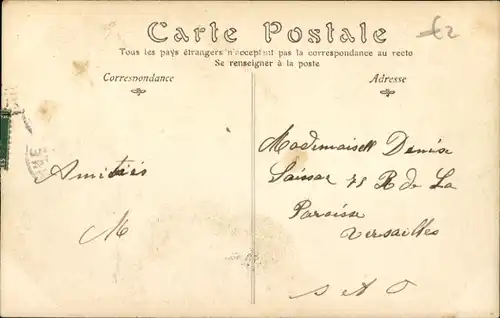 Carte Postale
Tous les pays étrangers n'acceptent pas la correspondance au recto
Se renseigner à la poste
Correspondance
Adresse
£2
Mademoiselle Denise
Amitiés
75 R de La
Paroisse
Versailles
M
S A O